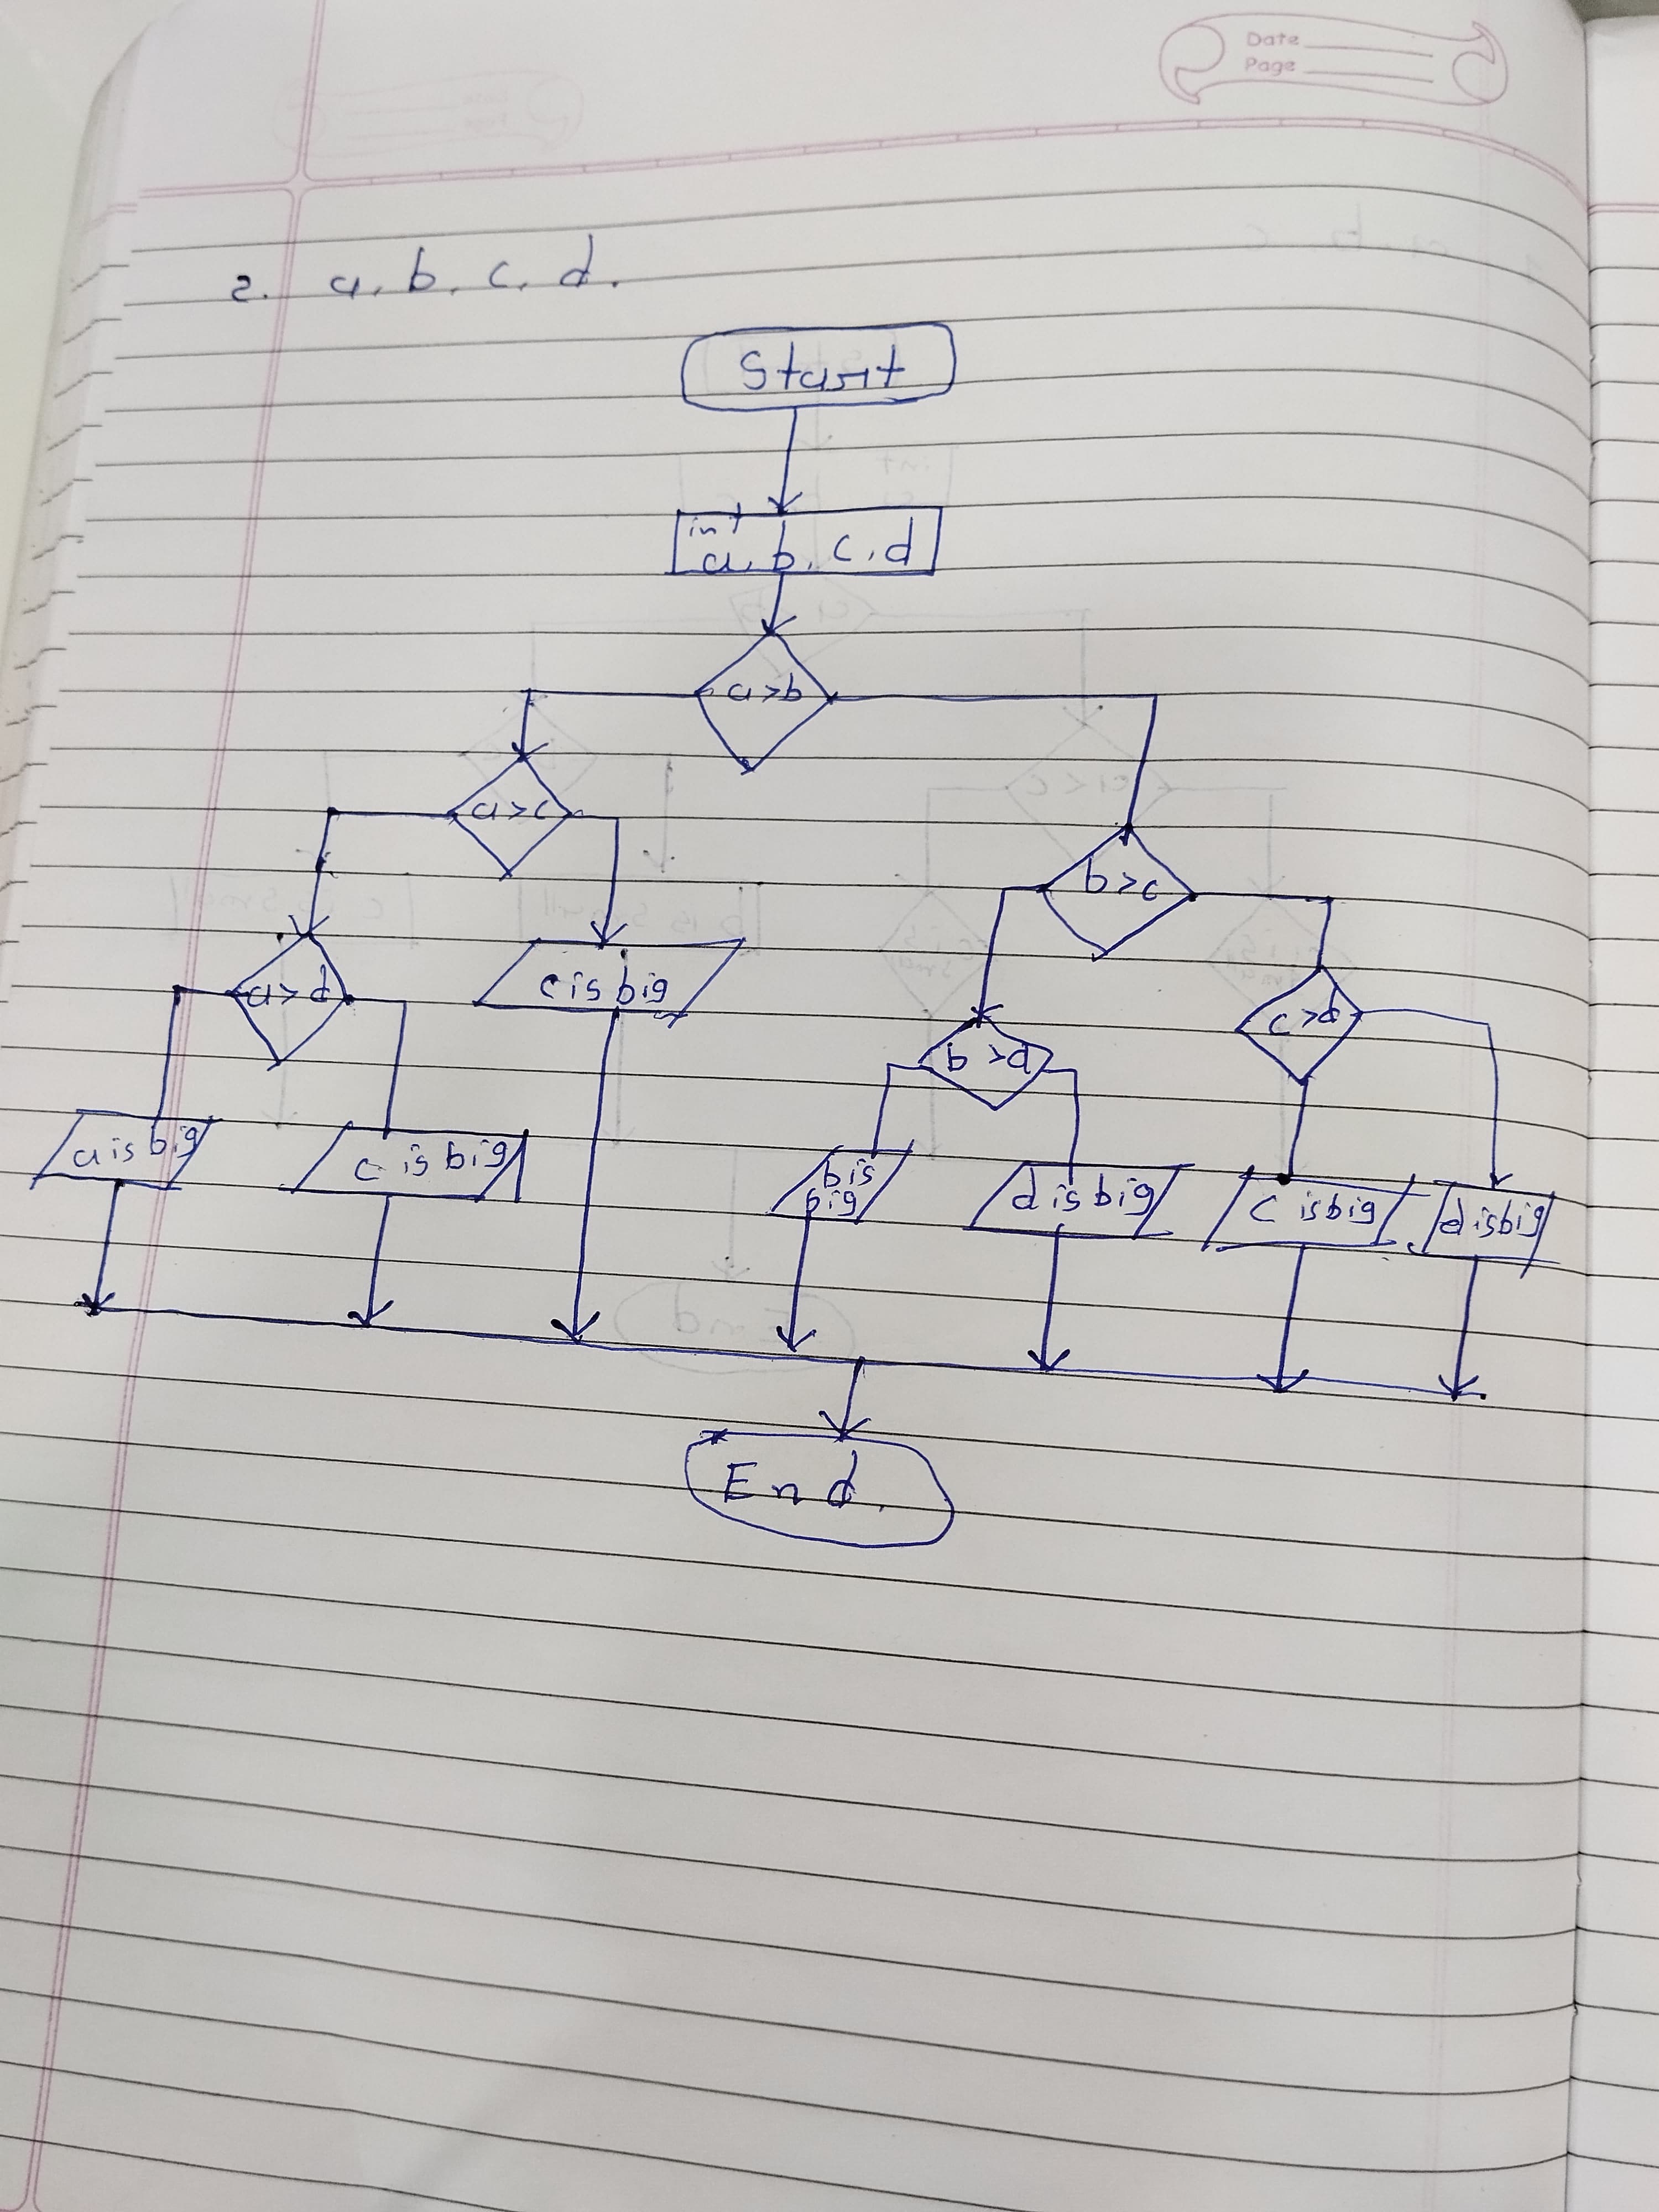 Date
Page
2. a, b, c, d.
Start
int
a, b, c, d
a>b
a>c
b>c
a>d
c is big
b>d
c>d
a is big
c is big
b is
big
d is big
c is big
d is big
End.